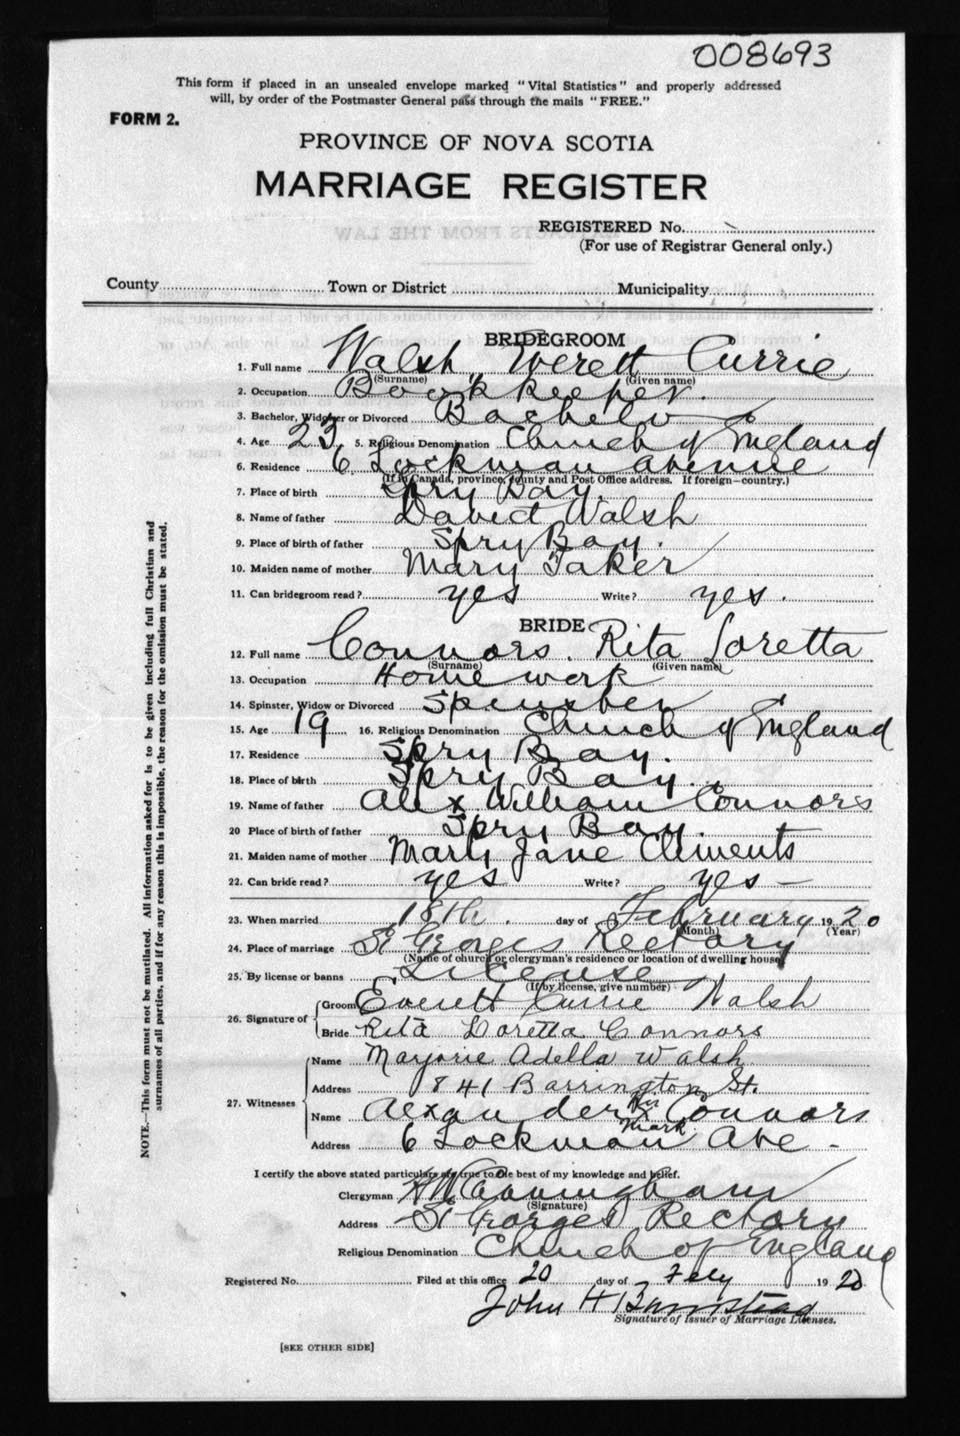 008693
This form if placed in an unsealed envelope marked "Vital Statistics" and properly addressed
will, by order of the Postmaster General pass through the mails "FREE."
FORM 2.
PROVINCE OF NOVA SCOTIA
MARRIAGE REGISTER
REGISTERED No.
(For use of Registrar General only.)
County Town or District Municipality
BRIDEGROOM
1. Full name Walsh, Everett Currie
(Surname) (Given name)
2. Occupation Bookkeeper.
3. Bachelor, Widower or Divorced Bachelor
4. Age 23 5. Religious Denomination Church of England
6. Residence 6 Lockman Avenue
(If in Canada, province, county and Post Office address. If foreign—country.)
7. Place of birth Spry Bay.
8. Name of father David Walsh
9. Place of birth of father Spry Bay.
10. Maiden name of mother Mary Taker
11. Can bridegroom read? yes Write? yes.
BRIDE
12. Full name Connors. Rita Loretta
(Surname) (Given name)
13. Occupation Homework
14. Spinster, Widow or Divorced Spinster
15. Age 19 16. Religious Denomination Church of England
17. Residence Spry Bay.
18. Place of birth Spry Bay.
19. Name of father Alex William Connors
20 Place of birth of father Spry Bay.
21. Maiden name of mother Mary Jane Clements
22. Can bride read? yes Write? yes —
23. When married 18th. day of February 1920
(Month) (Year)
24. Place of marriage St Georges Rectory
(Name of church or clergyman's residence or location of dwelling house)
25. By license or banns License
(If by license, give number)
26. Signature of Groom Everett Currie Walsh
Bride Rita Loretta Connors
27. Witnesses Name Marjorie Adella Walsh
Address 841 Barrington St.
Name Alexander his X mark Connors
Address 6 Lockman Ave -
I certify the above stated particulars are true to the best of my knowledge and belief.
Clergyman H W Cunningham
(Signature)
Address St Georges Rectory
Religious Denomination Church of England
Registered No. Filed at this office 20 day of Feby 1920
John H Barnstead
Signature of Issuer of Marriage Licenses.
[SEE OTHER SIDE]
NOTE.—This form must not be mutilated. All information asked for is to be given including full Christian and
surnames of all parties, and if for any reason this is impossible, the reason for the omission must be stated.